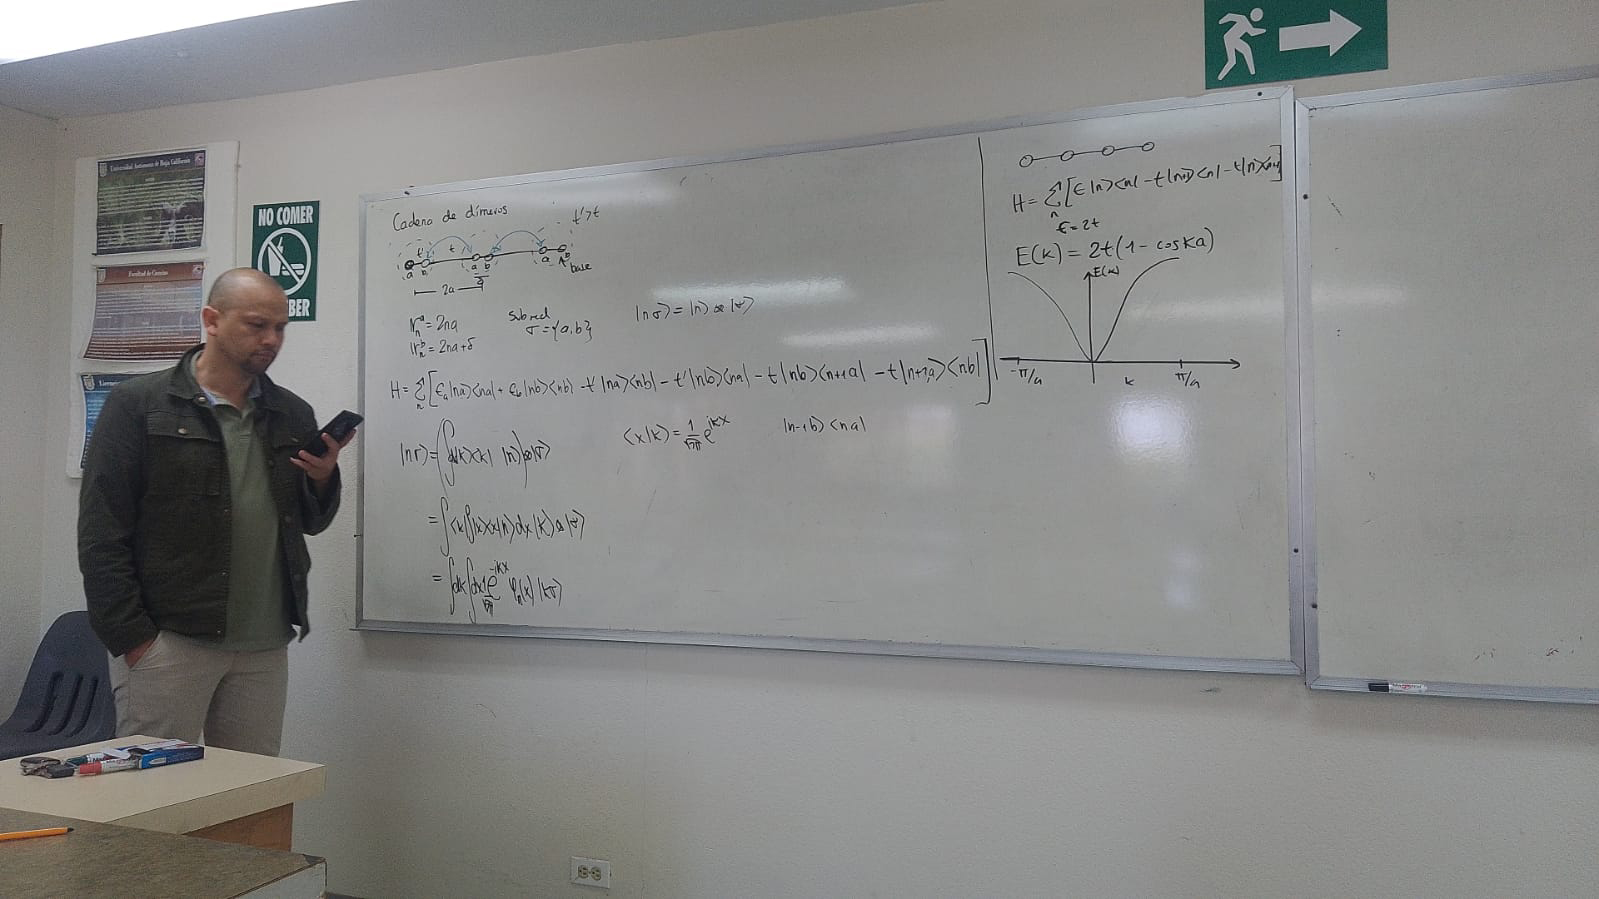 Universidad Autónoma de Baja California
Facultad de Ciencias
NO COMER
BER
Cadena de dímeros
t'>t
t' t
a b a b a b
base
2a
δ
|r_n^a = 2na
|r_n^b = 2na+δ
Subred
σ={a,b}
|nσ⟩=|n⟩⊗|σ⟩
H=∑_n[ϵ_a|na⟩⟨na|+ϵ_b|nb⟩⟨nb|-t'|na⟩⟨nb|-t'|nb⟩⟨na|-t|nb⟩⟨n+1a|-t|n+1,a⟩⟨nb|]
|nσ⟩=(∫dk|k⟩⟨k| |n⟩)⊗|σ⟩
⟨x|k⟩=1/√2π e^{ikx}
|n-1b⟩⟨na|
=∫⟨k|∫|x⟩⟨x|n⟩dx|k⟩⊗|σ⟩
=∫dk∫dx 1/√2π e^{-ikx} φ_n(x)|kσ⟩
H=∑_n[ϵ|n⟩⟨n|-t|n+1⟩⟨n|-t|n⟩⟨n+1|]
ϵ=2t
E(k)=2t(1-cos ka)
E(k)
-π/a k π/a